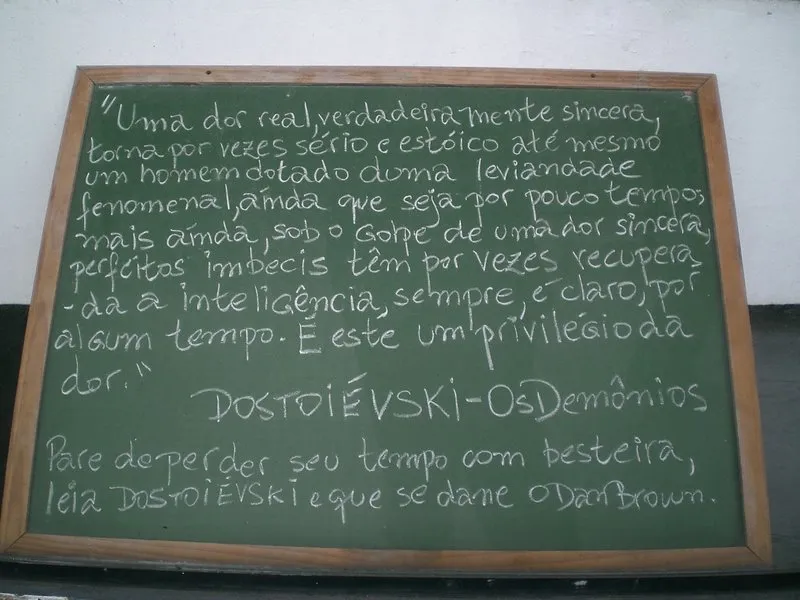 "Uma dor real, verdadeiramente sincera,
torna por vezes sério e estóico até mesmo
um homem dotado duma leviandade
fenomenal, ainda que seja por pouco tempo;
mais ainda, sob o golpe de uma dor sincera,
perfeitos imbecis têm por vezes recupera
-da a inteligência, sempre, é claro, por
algum tempo. É este um privilégio da
dor."
DOSTOIÉVSKI - Os Demônios
Pare de perder seu tempo com besteira,
leia DOSTOIÉVSKI e que se dane O Dan Brown.